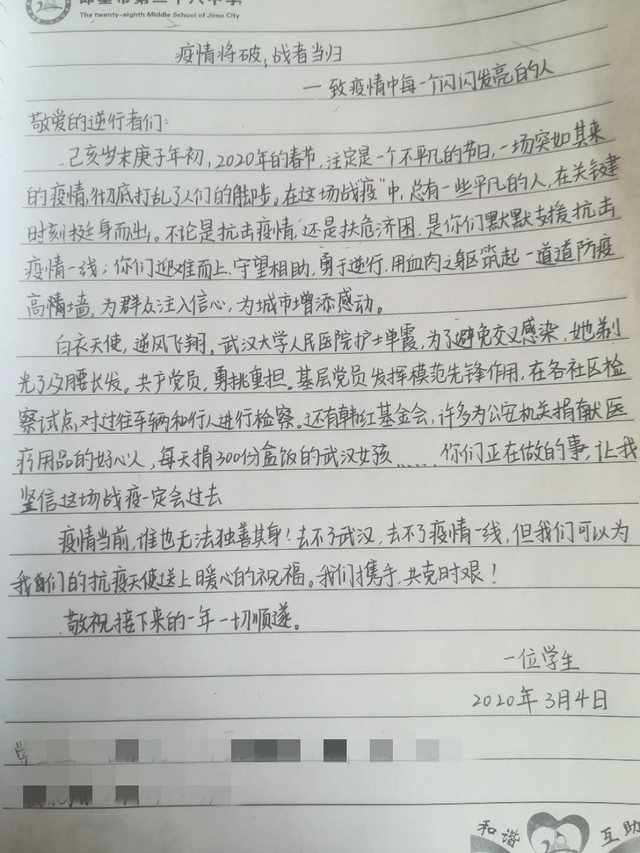 The twenty-eighth Middle School of Jimo City
疫情将破,战者当归
—致疫情中每一个闪闪发亮的人
敬爱的逆行者们:
己亥岁末庚子年初,2020年的春节,注定是一个不平凡的节日,一场突如其来
的疫情,彻底打乱了人们的脚步。在这场战疫"中,总有一些平凡的人,在关键
时刻挺身而出。不论是抗击疫情,还是扶危济困,是你们默默支援抗击
疫情一线;你们迎难而上,守望相助,勇于逆行,用血肉之躯筑起一道道防疫
高墙,为群众注入信心,为城市增添感动。
白衣天使,逆风飞翔。武汉大学人民医院护士单霞,为了避免交叉感染,她剃
光了及腰长发。共产党员,勇挑重担。基层党员发挥模范先锋作用,在各社区检
察试点,对过往车辆和行人进行检察。还有韩红基金会,许多为公安机关捐献医
疗用品的好心人,每天捐300份盒饭的武汉女孩……你们正在做的事,让我
坚信这场战疫一定会过去
疫情当前,谁也无法独善其身!去不了武汉,去不了疫情一线,但我们可以为
我们的抗疫天使送上暖心的祝福。我们携手,共克时艰!
敬祝接下来的一年一切顺遂。
一位学生
2020年3月4日
和谐 互助